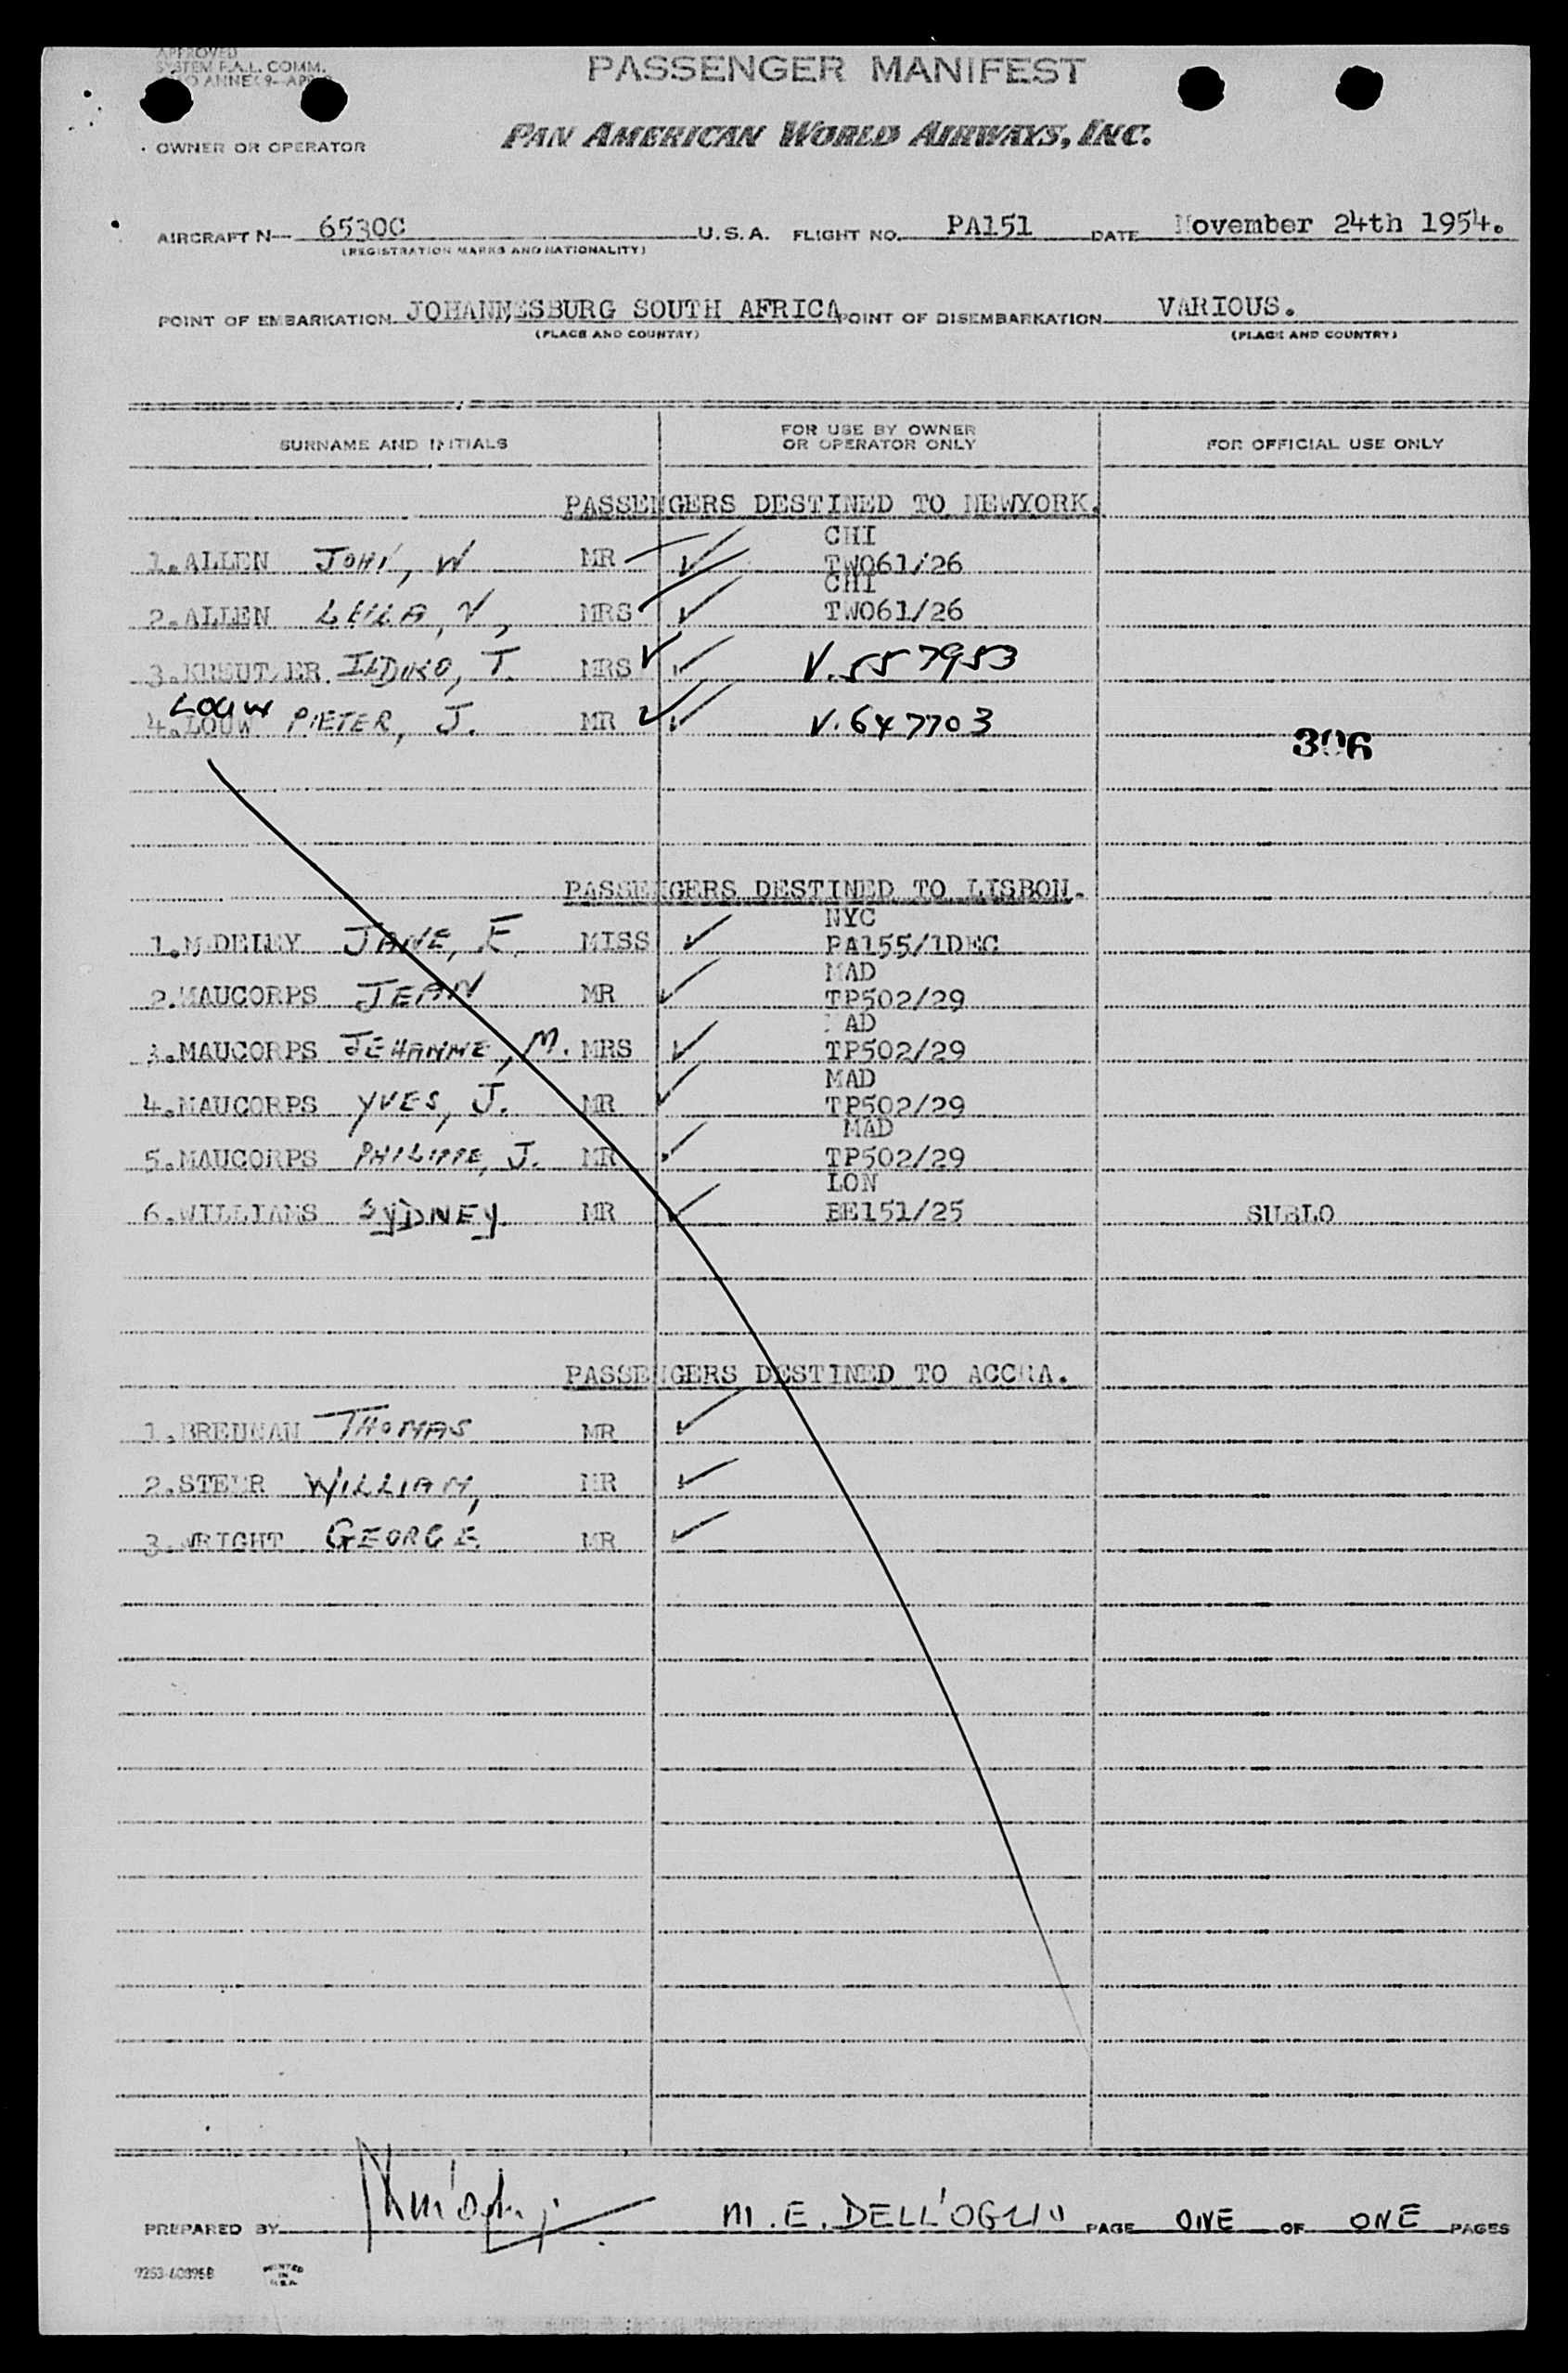 APPROVED
SYSTEM F.A.L. COMM.
ANNEX 9-
PASSENGER MANIFEST
OWNER OR OPERATOR
PAN AMERICAN WORLD AIRWAYS, INC.
AIRCRAFT N— 6530C U.S.A. FLIGHT NO. PA151 DATE November 24th 1954.
(REGISTRATION MARKS AND NATIONALITY)
POINT OF EMBARKATION JOHANNESBURG SOUTH AFRICA POINT OF DISEMBARKATION VARIOUS.
(PLACE AND COUNTRY) (PLACE AND COUNTRY)
SURNAME AND INITIALS FOR USE BY OWNER OR OPERATOR ONLY FOR OFFICIAL USE ONLY
PASSENGERS DESTINED TO NEWYORK.
CHI
1.ALLEN JOHN, W MR TW061/26
CHI
2.ALLEN LEILA, V, MRS TW061/26
3.KREUTZER ILDIKO, T. MRS V.557953
LOUW
4.LOUW PIETER, J. MR V.647703
306
PASSENGERS DESTINED TO LISBON.
NYC
1.MADELEY JANE, E. MISS PA155/1DEC
MAD
2.MAUCORPS JEAN MR TP502/29
MAD
3.MAUCORPS JEHANNE, M. MRS TP502/29
MAD
4.MAUCORPS YVES, J. MR TP502/29
MAD
5.MAUCORPS PHILIPPE, J. MR TP502/29
LON
6.WILLIAMS SYDNEY MR BE151/25 SUBLO
PASSENGERS DESTINED TO ACCRA.
1.BRENNAN THOMAS MR
2. WILLIAM, MR
3.WRIGHT GEORGE MR
PREPARED BY M.E. DELL'OGLIO PAGE ONE OF ONE PAGES
PRINTED
IN
U.S.A.